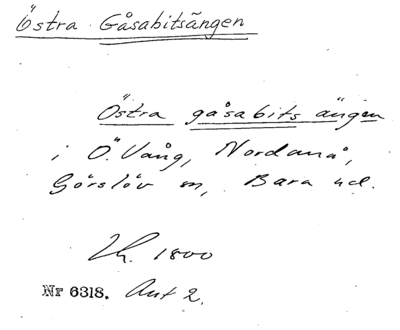 Östra Gåsabitsängen
Östra gåsabits ängen
i Ö. Vång, Nordanå,
Görslöv sn, Bara hd.
Lh. 1800
Nr 6318. Akt 2.